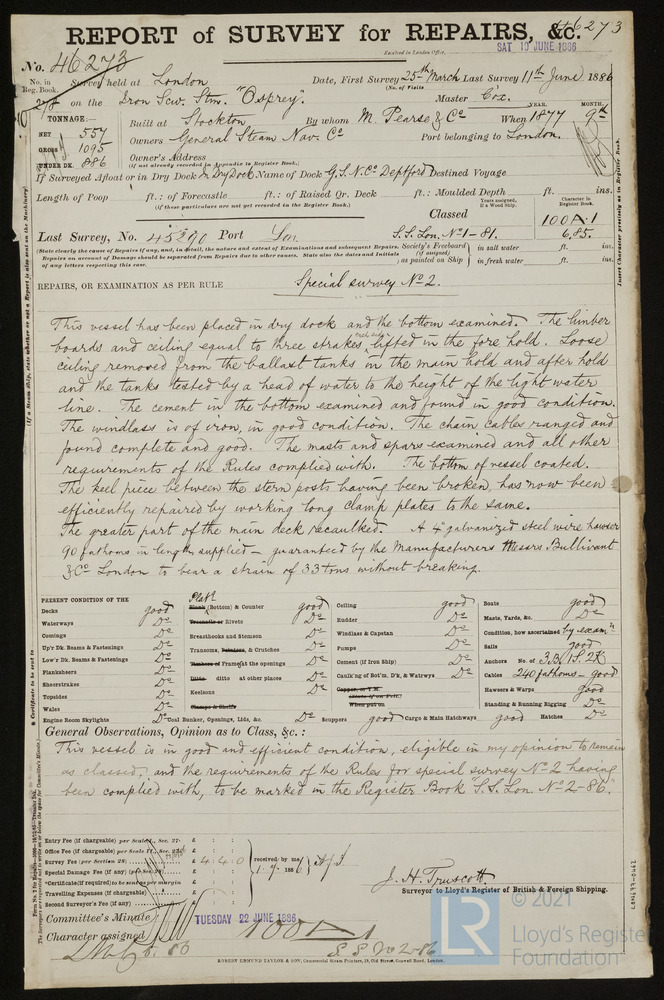 REPORT of SURVEY for REPAIRS, &c. 46273
Received in London Office,
SAT 19 JUNE 1886
No. 46273
No. in Reg. Book.
Survey held at London Date, First Survey 25th March Last Survey 11th June 1886
(No. of Visits
on the Iron Scw. Stmr. "Osprey". Master Cox.
TONNAGE:— YEAR. MONTH.
Built at Stockton By whom M. Pearse & Co When 1877 9th
NET 557
Owners General Steam Nav. Co Port belonging to London.
GROSS 1095
Owner's Address
UNDER DK. 886
(if not already recorded in Appendix to Register Book.)
If Surveyed Afloat or in Dry Dock In Dry Dock Name of Dock G.S.N.Co Deptford Destined Voyage
Length of Poop ft.: of Forecastle ft.: of Raised Qr. Deck ft.: Moulded Depth ft. ins.
(if these particulars are not yet recorded in the Register Book.)
Classed
Character in Register Book.
100A.1
6,85.
Last Survey, No. 45290 Port Lon. S.S. Lon. No 1-81.
(State clearly the cause of Repairs if any, and, in detail, the nature and extent of Examinations and subsequent Repairs. Society's Freeboard (if assigned) in salt water ft. ins.
Repairs on account of Damage should be separated from Repairs due to other causes. State also the dates and Initials as painted on Ship in fresh water ft. ins.
of any letters respecting this case.
REPAIRS, OR EXAMINATION AS PER RULE Special survey No 2.
This vessel has been placed in dry dock and the bottom examined. The limber
boards and ceiling equal to three strakes each side lifted in the fore hold. Loose
ceiling removed from the ballast tanks in the main hold and after hold
and the tanks tested by a head of water to the height of the light water
line. The cement in the bottom examined and found in good condition.
The windlass is of iron, in good condition. The chain cables ranged and
found complete and good. The masts and spars examined and all other
requirements of the Rules complied with. The bottom of vessel coated.
The keel piece between the stern posts having been broken, has now been
efficiently repaired by working long clamp plates to the same.
The greater part of the main deck recaulked. A 4" galvanized steel wire hawser
90 fathoms in length supplied — guaranteed by the Manufacturers Messrs Bullivant
& Co London to bear a strain of 33 tons without breaking.
PRESENT CONDITION OF THE
Decks good Plate Plank (Bottom) & Counter good Ceiling good Boats good
Waterways Do Treenails or Rivets Do Rudder Do Masts, Yards, &c. Do
Comings Do Breasthooks and Stemson Do Windlass & Capstan Do Condition, how ascertained by exam'n
Up'r Dk. Beams & Fastenings Do Transoms, Pointers, & Crutches Do Pumps Do Sails good
Low'r Dk. Beams & Fastenings Do Timbers of Frame at the openings Do Cement (if Iron Ship) Do Anchors No. of 3.B. 1S. 2K
Planksheers Do Ditto ditto at other places Do Caulk'ng of Bot'm, D'k, & Watrwys Do Cables 240 fathoms - good
Sheerstrakes Do Keelsons Do Copper, or Y.M. Hawsers & Warps good
Topsides Do Clamps & Shelfs When put on Standing & Running Rigging Do
Wales Do
Engine Room Skylights Do Coal Bunker, Openings, Lids, &c. Do Scuppers good Cargo & Main Hatchways good Hatches Do
General Observations, Opinion as to Class, &c.:
This vessel is in good and efficient condition, eligible in my opinion to remain
as classed, and the requirements of the Rules for special survey No 2 having
been complied with, to be marked in the Register Book S.S. Lon. No 2-86.
Entry Fee (if chargeable) per Scale I., Sec. 27- £ : :
Office Fee (if chargeable) per Scale II., Sec. £ : :
Survey Fee (per Section 28) £ 4 : 4 : 0 received by me,
Special Damage Fee (if any) (per Sec. 28) £ : : 1.7.1886
*Certificate (if required) to be sent as per margin £ : :
Travelling Expenses (if chargeable) £ : :
Second Surveyor's Fee (if any) £ : :
J. H. Truscott
Surveyor to Lloyd's Register of British & Foreign Shipping.
Committee's Minute TUESDAY 22 JUNE 1886
Character assigned 100A1
S.S. No 2-86
ROBERT EDMUND TAYLOR & SON, Commercial Steam Printers, 19, Old Street, Goswell Road, London.
Insert Character precisely as in Register Book.
LR
© 2021
Lloyd's Register
Foundation